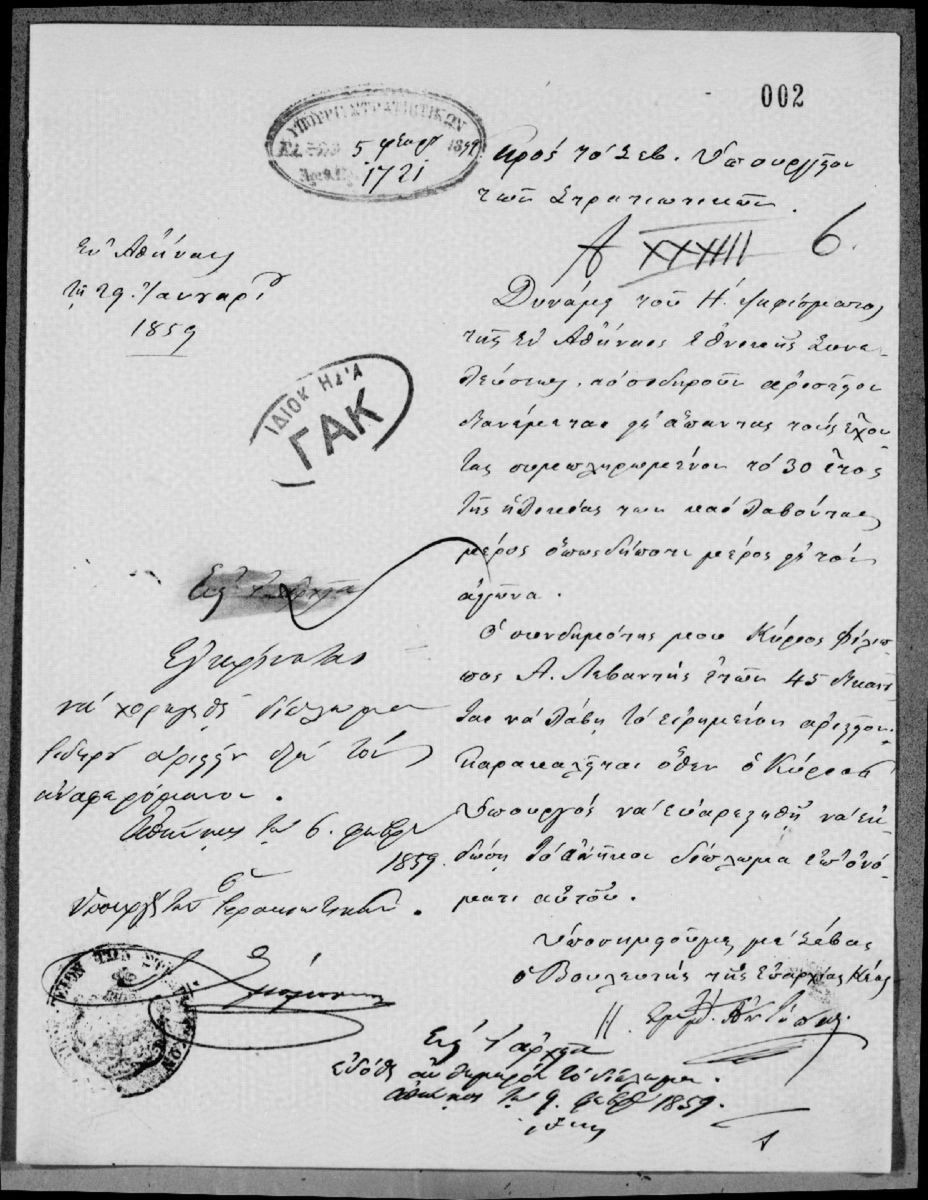 002
ΥΠΟΥΡΓ. ΣΤΡΑΤΙΩΤΙΚΩΝ
5 φεβρ 1859
1721
Πρός τό Σεβ. Υπουργείον
τών Στρατιωτικών.
Α XXXIII 6.
Εν Αθήναις
τη 29 Ιανουαρίου
1859
ΙΔΙΟΚΤΗΣΙΑ
ΓΑΚ
Δυνάμει του Η. ψηφίσματος
της εν Αθήναις Εθνικής Συνε-
λεύσεως, τό σιδηρούν αριστείον
διανέμεται εις άπαντας τούς έχον
τας συμπληρωμένον τό 30 έτος
της ηλικίας των και λαβόντας
μέρος οπωσδήποτε μέρος εις τον
αγώνα.
Ο συνδημότης μου Κύριος Φίλιπ
πος Α. Λεβαντής ετών 45 δικαιού
ται νά λάβη τό ειρημένον αριστείον.
Παρακαλείται όθεν ο Κύριος
Υπουργός νά ευαρεστηθή νά εκ
δώση τό ανήκον δίπλωμα επ' ονό-
ματι αυτού.
Υποσημειούμαι με σέβας
ο Βουλευτής της Επαρχίας Κέας
Εγκρίνεται
νά χορηγηθή δίπλωμα
σιδηρού αριστείου διά τόν
αναφερόμενον.
Αθήναις τη 6. φεβρ
1859.
Ο
Υπουργός των Στρατιωτικών.
Εις τ' αρχεία
Εδόθη αυθημερόν τό δίπλωμα.
Αθήναις τη 9. φεβρ 1859.